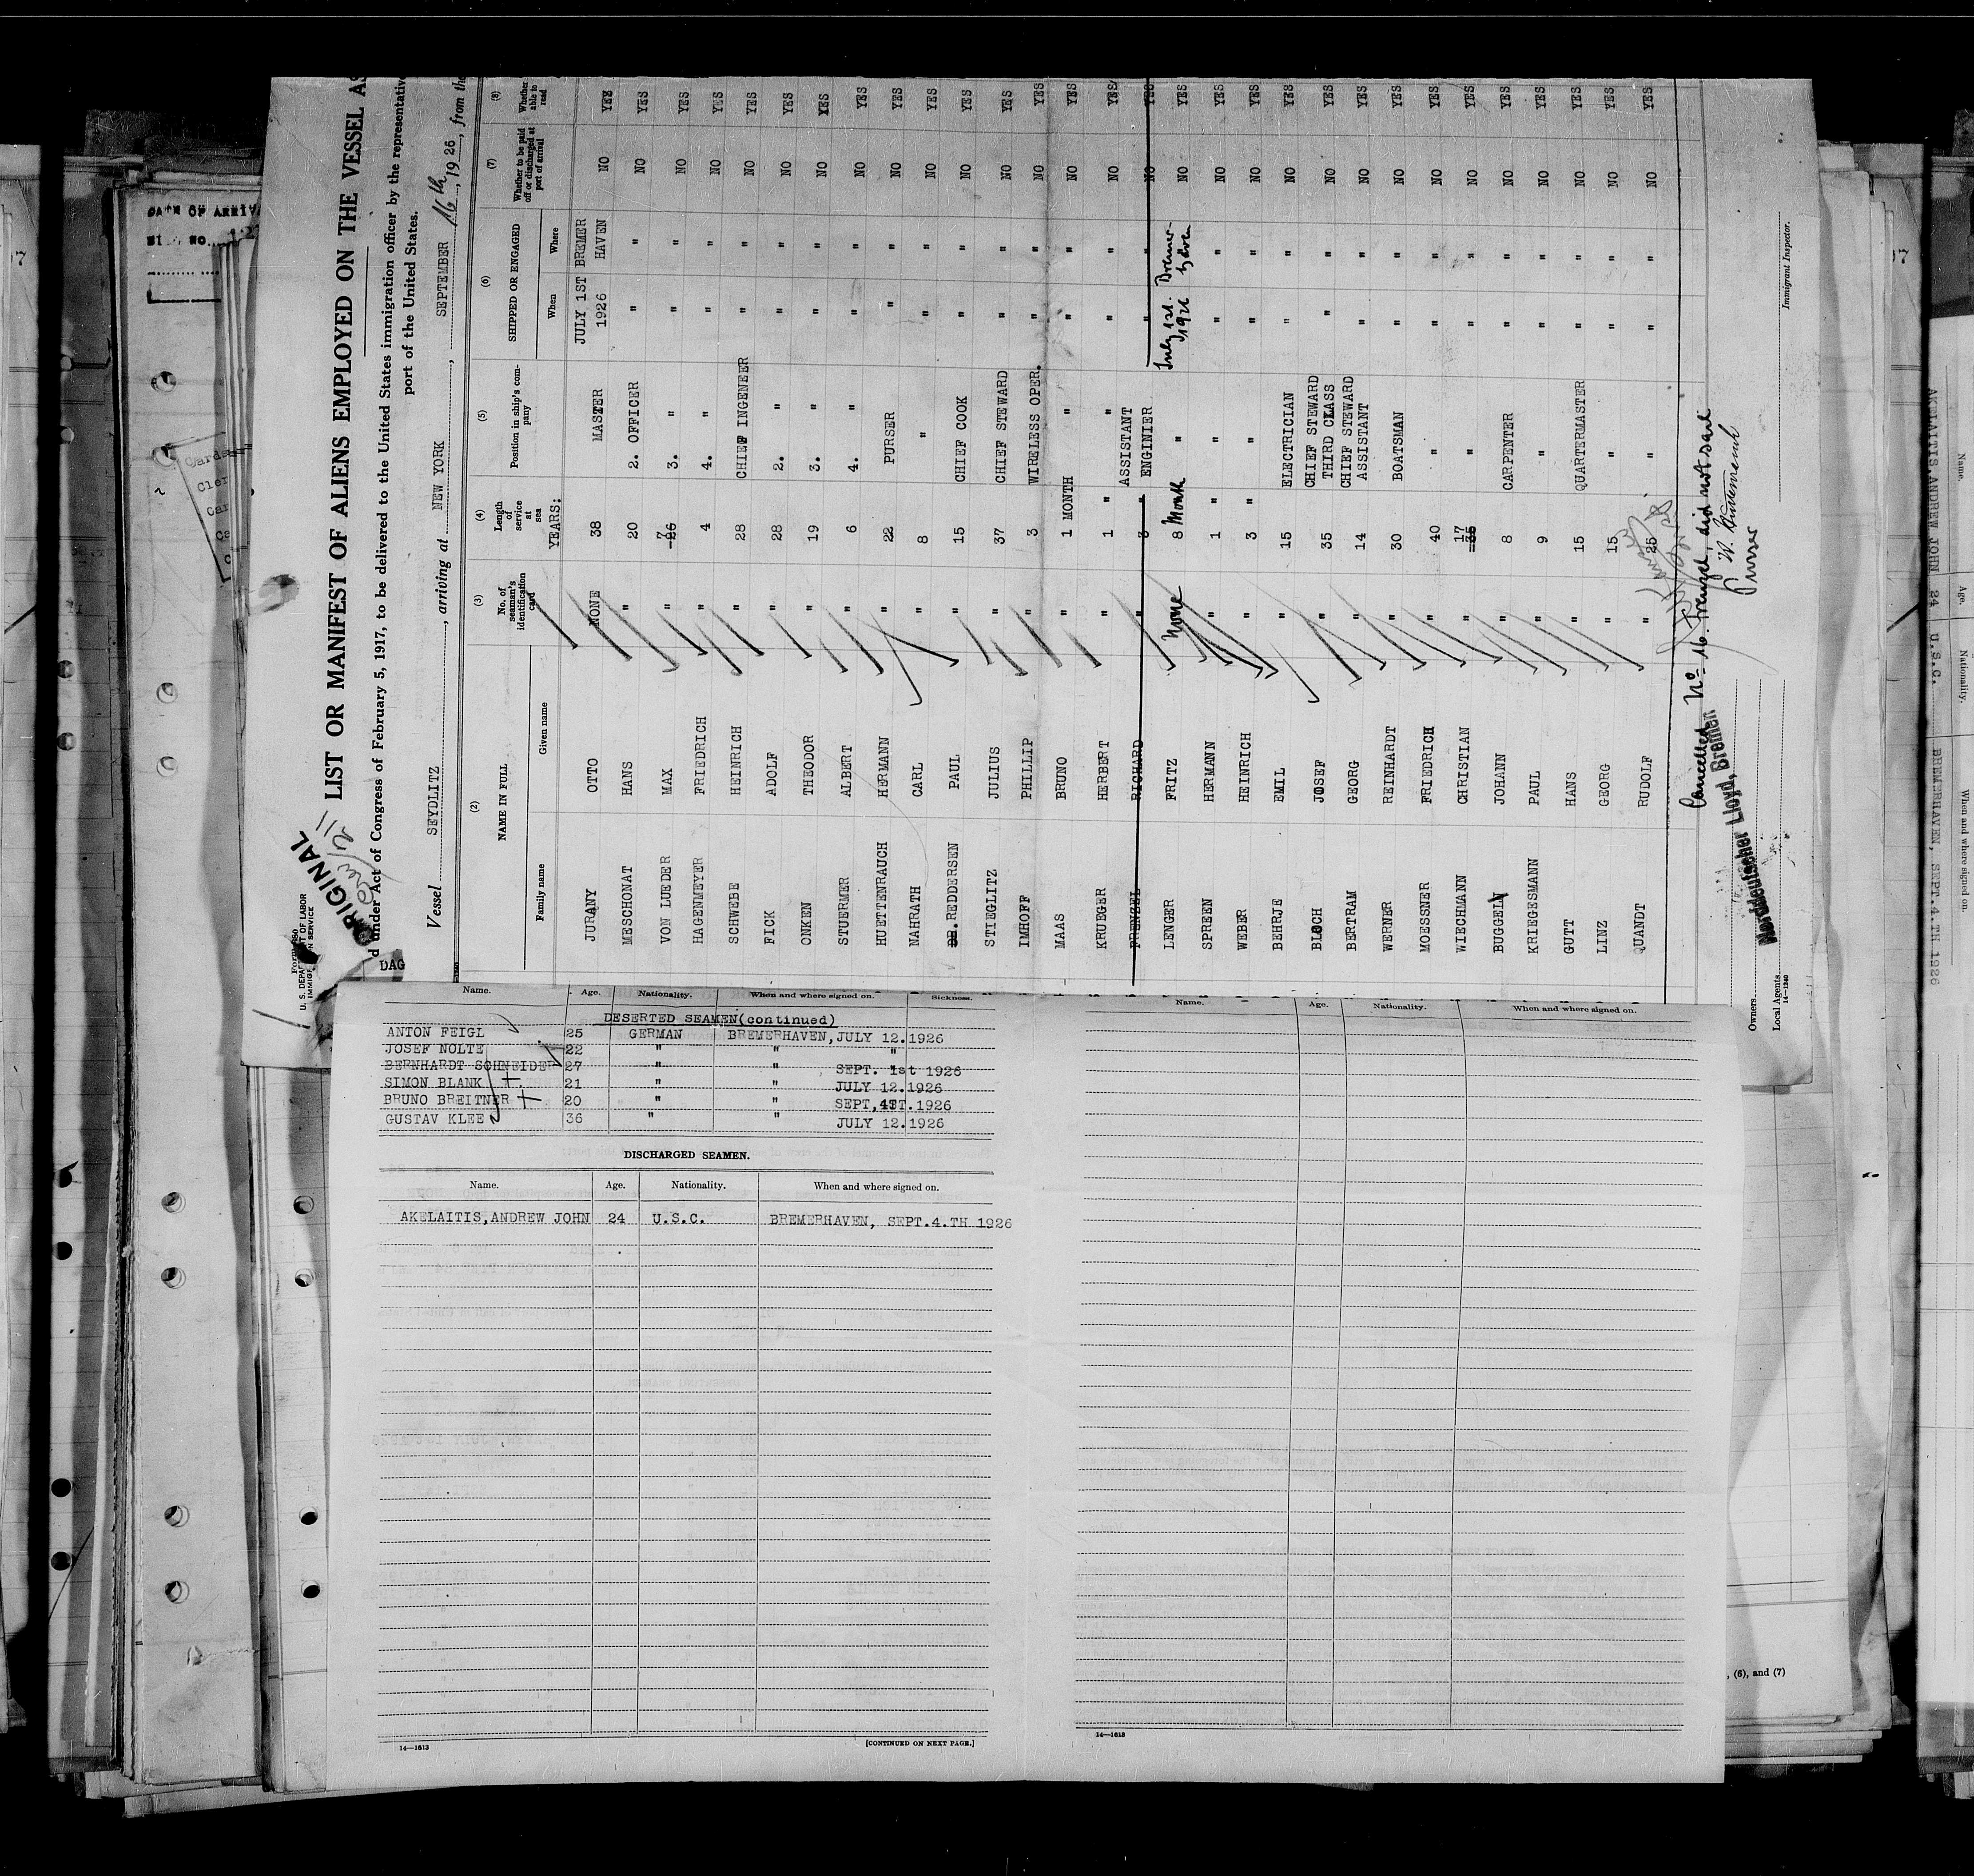 ORIGINAL
U. S. DEPARTMENT OF LABOR
IMMIGRATION SERVICE
LIST OR MANIFEST OF ALIENS EMPLOYED ON THE VESSEL AS
d under Act of Congress of February 5, 1917, to be delivered to the United States immigration officer by the representative
port of the United States.
Vessel SEYDLITZ, arriving at NEW YORK, SEPTEMBER 16th, 1926, from the
(2) (3) (4) (5) (6) (7) (8)
NAME IN FULL No. of seaman's identification card Length of service at sea Position in ship's company SHIPPED OR ENGAGED Whether to be paid off or discharged at port of arrival Whether able to read
Family name Given name YEARS: When Where
JURANY OTTO NONE 38 MASTER JULY 1ST 1926 BREMER HAVEN NO YES
MESCHONAT HANS " 20 2. OFFICER " " NO YES
VON LUEDER MAX " 7 26 3. " " " NO YES
HAGENMEYER FRIEDRICH " 4 4. " " " NO YES
SCHWEBE HEINRICH " 28 CHIEF INGENEER " " NO YES
FICK ADOLF " 28 2. " " " NO YES
ONKEN THEODOR " 19 3. " " " NO YES
STUERMER ALBERT " 6 4. " " " NO YES
HUETTENRAUCH HERMANN " 22 PURSER " " NO YES
NAHRATH CARL " 8 " " " NO YES
DR. REDDERSEN PAUL " 15 CHIEF COOK " " NO YES
STIEGLITZ JULIUS " 37 CHIEF STEWARD " " NO YES
IMHOFF PHILLIP " 3 WIRELESS OPER. " " NO YES
MAAS BRUNO " 1 MONTH " " " NO YES
KRUEGER HERBERT " 1 " " " " NO YES
FRENZEL RICHARD " 3 " ASSISTANT ENGINIER " " NO YES
LENGER FRITZ None 8 Month " July 1st. 1926 Bremerhaven NO YES
SPREEN HERMANN " 1 " " " " NO YES
WEBER HEINRICH " 3 " " " " NO YES
BEHRJE EMIL " 15 ELECTRICIAN " " NO YES
BLOCH JOSEF " 35 CHIEF STEWARD THIRD CLASS " " NO YES
BERTRAM GEORG " 14 CHIEF STEWARD ASSISTANT " " NO YES
WERNER REINHARDT " 30 BOATSMAN " " NO YES
MOESSNER FRIEDRICH " 40 " " " NO YES
WIECHMANN CHRISTIAN " 17 35 " " " NO YES
BUGGELN JOHANN " 8 CARPENTER " " NO YES
KRIEGESMANN PAUL " 9 " " " NO YES
GUTT HANS " 15 QUARTERMASTER " " NO YES
LINZ GEORG " 15 " " " NO YES
QUANDT RUDOLF " 25 " " " NO YES
Cancelled No 16. Frenzel, did not sail
Purser
Norddeutscher Lloyd, Bremen
Owners
Local Agents
14-1240
Immigrant Inspector.
DAG
Name. Age. Nationality. When and where signed on. Sickness.
DESERTED SEAMEN(continued)
ANTON FEIGL 25 GERMAN BREMERHAVEN, JULY 12.1926
JOSEF NOLTE 22 " " "
BERNHARDT SCHNEIDER 27 " " SEPT. 1st 1926
SIMON BLANK 21 " " JULY 12.1926
BRUNO BREITNER 20 " " SEPT, 4T.1926
GUSTAV KLEE 36 " " JULY 12.1926
DISCHARGED SEAMEN.
Name. Age. Nationality. When and where signed on.
AKELAITIS, ANDREW JOHN 24 U.S.C. BREMERHAVEN, SEPT.4.TH 1926
14—1613
[CONTINUED ON NEXT PAGE.]
Name. Age. Nationality. When and where signed on.
14—1613
, (6), and (7)
Name. Age. Nationality. When and where signed on.
AKELAITIS, ANDREW JOHN 24 U.S.C. BREMERHAVEN, SEPT.4.TH 1926